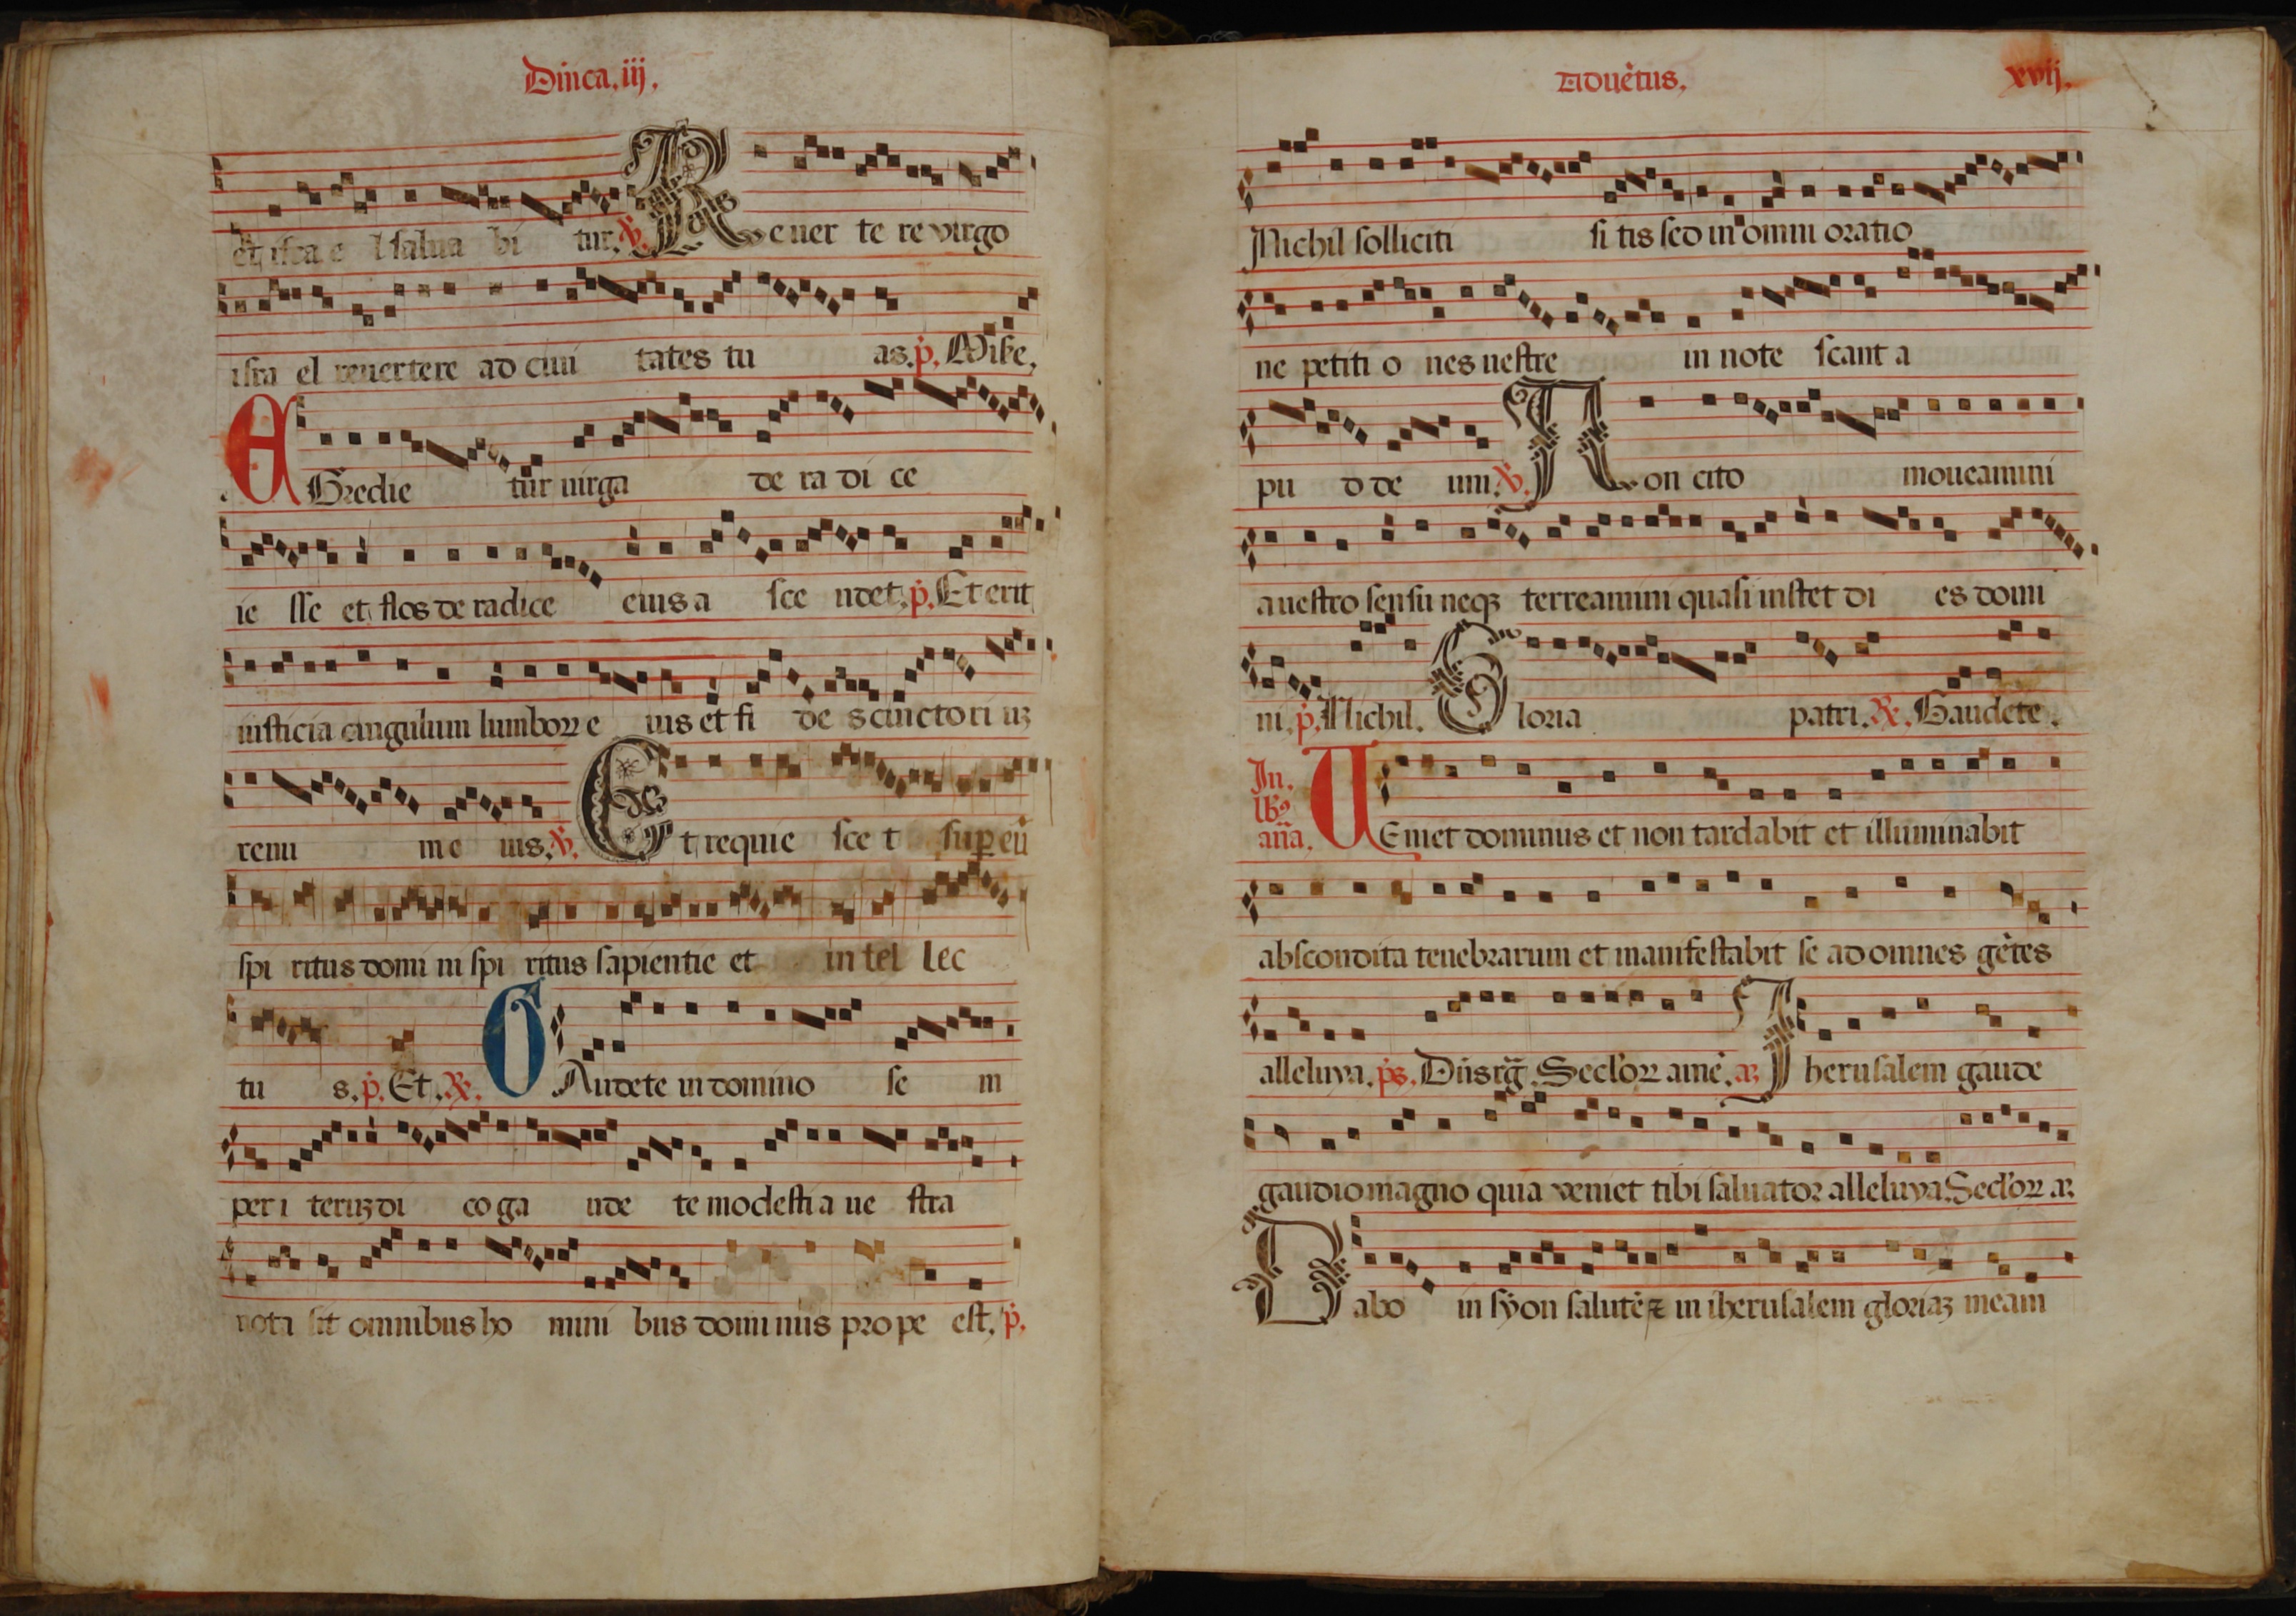 Dnica.iij.
et isra e l salua bi tur. V. Reuer te re virgo
isra el reuertere ad ciui tates tu as. p. Mise.
EGredie tur uirga de ra di ce
ie sse et flos de radice eius a sce ndet. p. Et erit
iusticia cingulum lumboꝝ e ius et fi de s cinctori uꝫ
renu m e ius. V. Et requie sce t sup eū
spi ritus domi ni spi ritus sapientie et in tel lec
tu s. p. Et. R. GAudete in domino se m
per i teruꝫ di co ga ude te modesti a ue stra
nota sit omnibus ho mini bus domi nus pro pe est. p.
Aduētus. xvij.
Nichil solliciti si tis sed in omni oratio
ne petiti o nes uestre in note scant a
pu d de um. V. Non cito moueamini
a uestro sensu neqꝫ terreamini quasi instet di es domi
ni. p. Nichil. Gloria patri. R. Gaudete.
In. lbꝯ ana. UEniet dominus et non tardabit et illuminabit
abscondita tenebrarum et manifestabit se ad omnes gētes
alleluya. ps. Dns rg. Secl'oꝝ amē. a. Iherusalem gaude
gaudio magno quia veniet tibi saluator alleluya. Secl'oꝝ a.
Dabo in syon salutē ⁊ in iherusalem gloriaꝫ meam